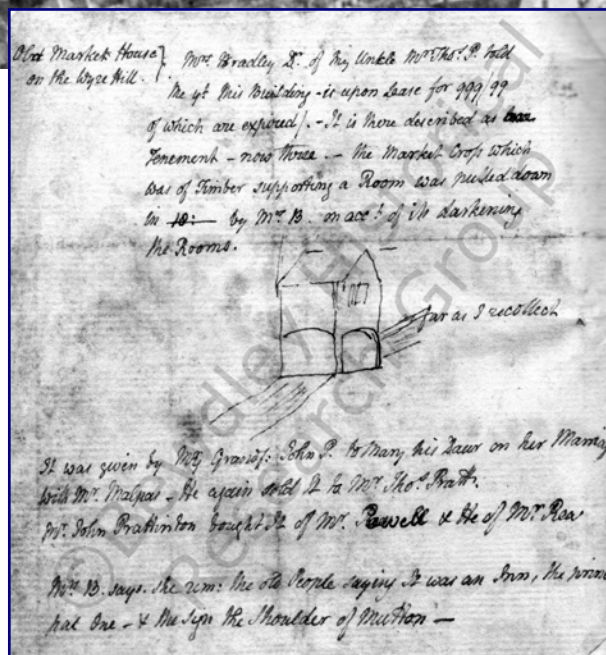 Old Market House
on the Wyre Hill.
Mrs. Bradley Dr. of my Unkle Mr. Thos. P. told
Me yt. this Building - is upon Lease for 999/99
of which are expired). - It is there described as
Tenement - now three. - the Market Cross which
was of Timber supporting a Room was pulled down
in 18: - by Mrs. B. on acct. of its darkening
the Rooms.
far as I recollect
It was given by My Grandf: John P. to Mary his Daur on her Marria
with Mr. Malpas - He again sold it to Mr. Thos. Pratt.
Mr. John Prattinton bought it of Mr. Powell & He of Mr. Rea
Mrs. B. says. she rem: the old People saying It was an Inn, the princi
pal One - & the sign the Shoulder of Mutton -
© Bewdley Historical
Research Group